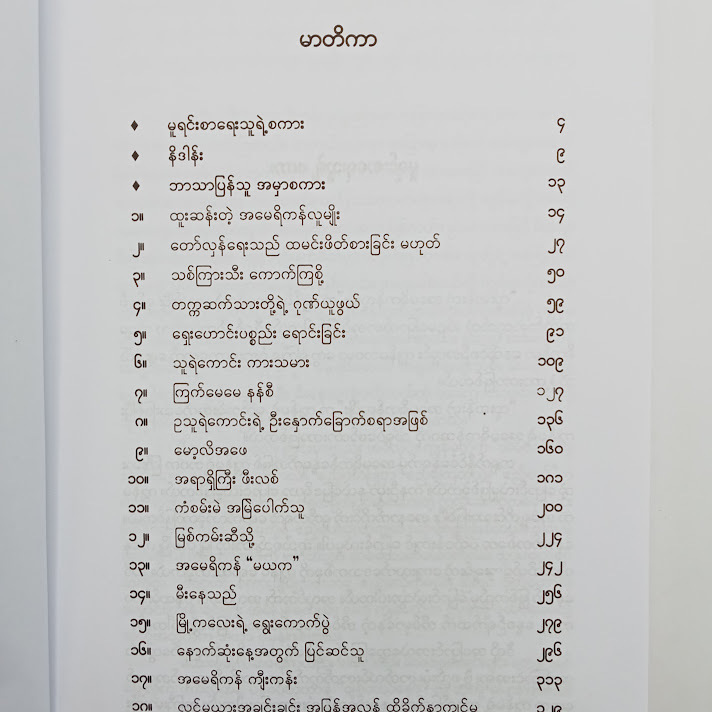 မာတိကာ
♦ မူရင်းစာရေးသူရဲ့စကား ၄
♦ နိဒါန်း ၉
♦ ဘာသာပြန်သူ အမှာစကား ၁၃
၁။ ထူးဆန်းတဲ့ အမေရိကန်လူမျိုး ၁၄
၂။ တော်လှန်ရေးသည် ထမင်းဖိတ်စားခြင်း မဟုတ် ၂၇
၃။ သစ်ကြားသီး ကောက်ကြစို့ ၅၀
၄။ တက္ကဆက်သားတို့ရဲ့ ဂုဏ်ယူဖွယ် ၅၉
၅။ ရှေးဟောင်းပစ္စည်း ရောင်းခြင်း ၉၁
၆။ သူရဲကောင်း ကားသမား ၁၀၉
၇။ ကြက်မေမေ နန်စီ ၁၂၇
၈။ ဥသူရဲကောင်းရဲ့ ဦးနှောက်ခြောက်စရာအဖြစ် ၁၃၆
၉။ မော့လိအဖေ ၁၆၀
၁၀။ အရာရှိကြီး ဖီးလစ် ၁၈၁
၁၁။ ကံစမ်းမဲ အမြဲပေါက်သူ ၂၀၀
၁၂။ မြစ်ကမ်းဆီသို့ ၂၂၄
၁၃။ အမေရိကန် “မယက” ၂၄၂
၁၄။ မီးနေသည် ၂၅၆
၁၅။ မြို့ကလေးရဲ့ ရွေးကောက်ပွဲ ၂၇၉
၁၆။ နောက်ဆုံးနေ့အတွက် ပြင်ဆင်သူ ၂၉၆
၁၇။ အမေရိကန် ကျီးကန်း ၃၁၃
၁၈။ လင်မယားအချင်းချင်း အပြန်အလှန်